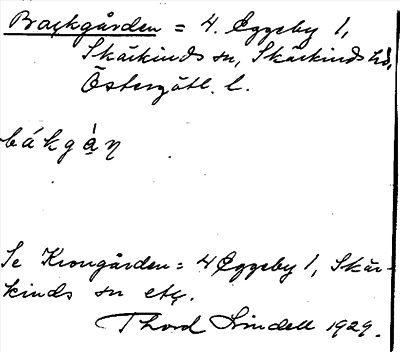 Backgården = 4. Eggeby 1,
Skärkinds sn, Skärkinds hd,
Östergötl. l.
bákgà̱ƞ
Se Krongården = 4 Eggeby 1, Skär-
kinds sn etc.
Thord Lindell 1929.